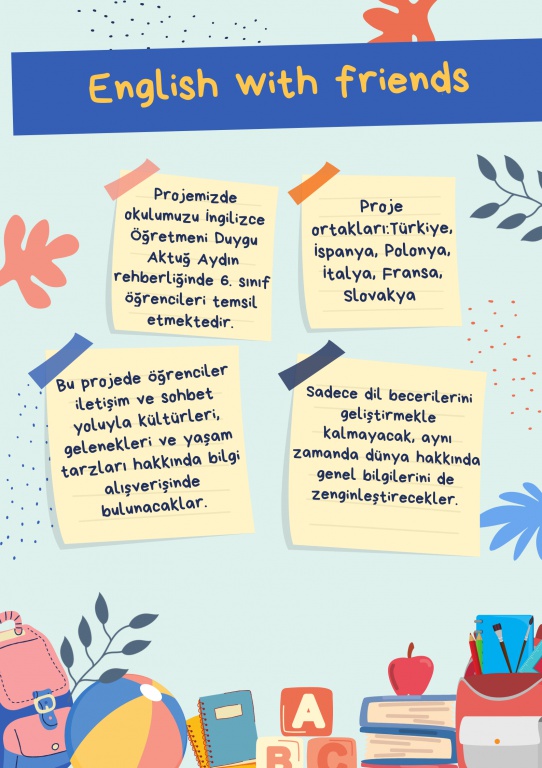 English with friends
Projemizde
okulumuzu İngilizce
Öğretmeni Duygu
Aktuğ Aydın
rehberliğinde 6. sınıf
öğrencileri temsil
etmektedir.
Proje
ortakları:Türkiye,
İspanya, Polonya,
İtalya, Fransa,
Slovakya
Bu projede öğrenciler
iletişim ve sohbet
yoluyla kültürleri,
gelenekleri ve yaşam
tarzları hakkında bilgi
alışverişinde
bulunacaklar.
Sadece dil becerilerini
geliştirmekle
kalmayacak, aynı
zamanda dünya hakkında
genel bilgilerini de
zenginleştirecekler.
A
B C